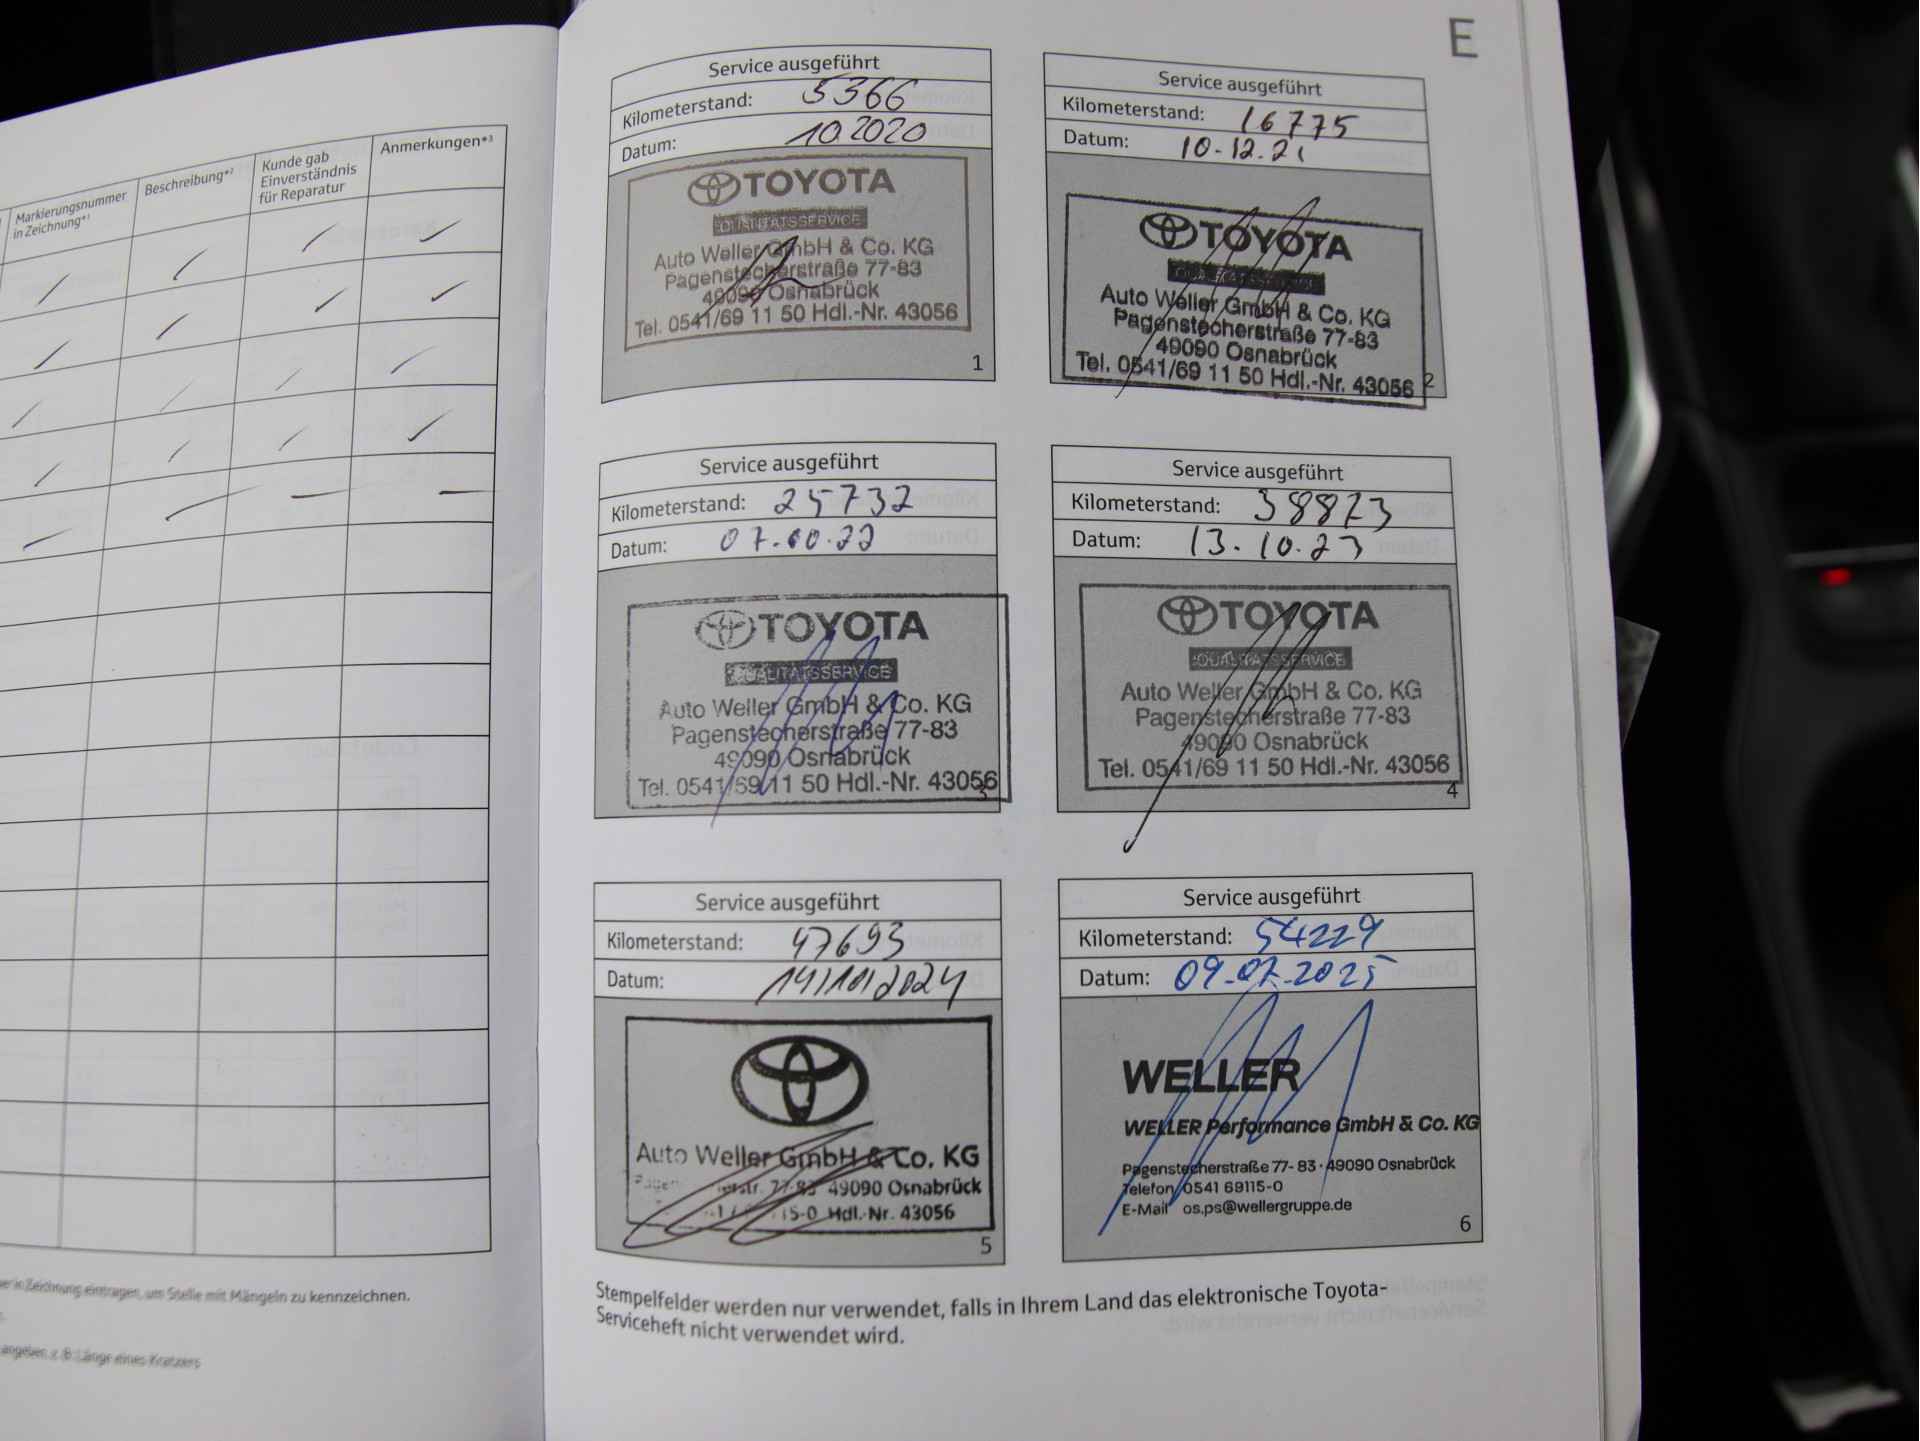 Markierungsnummer
in Zeichnung*¹
Beschreibung*²
Kunde gab
Einverständnis
für Reparatur
Anmerkungen*³
er in Zeichnung eintragen, um Stelle mit Mängeln zu kennzeichnen.
angeben, z. B. Länge eines Kratzers
E
Service ausgeführt
Kilometerstand: 5366
Datum: 10 2020
TOYOTA
QUALITÄTSSERVICE
Auto Weller GmbH & Co. KG
Pagenstecherstraße 77-83
49090 Osnabrück
Tel. 0541/69 11 50 Hdl.-Nr. 43056
1
Service ausgeführt
Kilometerstand: 16775
Datum: 10.12.21
TOYOTA
QUALITÄTSSERVICE
Auto Weller GmbH & Co. KG
Pagenstecherstraße 77-83
49090 Osnabrück
Tel. 0541/69 11 50 Hdl.-Nr. 43056
2
Service ausgeführt
Kilometerstand: 25732
Datum: 07.10.22
TOYOTA
QUALITÄTSSERVICE
Auto Weller GmbH & Co. KG
Pagenstecherstraße 77-83
49090 Osnabrück
Tel. 0541/69 11 50 Hdl.-Nr. 43056
3
Service ausgeführt
Kilometerstand: 38873
Datum: 13.10.23
TOYOTA
QUALITÄTSSERVICE
Auto Weller GmbH & Co. KG
Pagenstecherstraße 77-83
49090 Osnabrück
Tel. 0541/69 11 50 Hdl.-Nr. 43056
4
Service ausgeführt
Kilometerstand: 47693
Datum: 14/10/2024
Auto Weller GmbH & Co. KG
77-83 49090 Osnabrück
Hdl.-Nr. 43056
5
Service ausgeführt
Kilometerstand: 54229
Datum: 09.07.2025
WELLER
WELLER Performance GmbH & Co. KG
Pagenstecherstraße 77-83 · 49090 Osnabrück
Telefon 0541 69115-0
E-Mail os.ps@wellergruppe.de
6
Stempelfelder werden nur verwendet, falls in Ihrem Land das elektronische Toyota-
Serviceheft nicht verwendet wird.